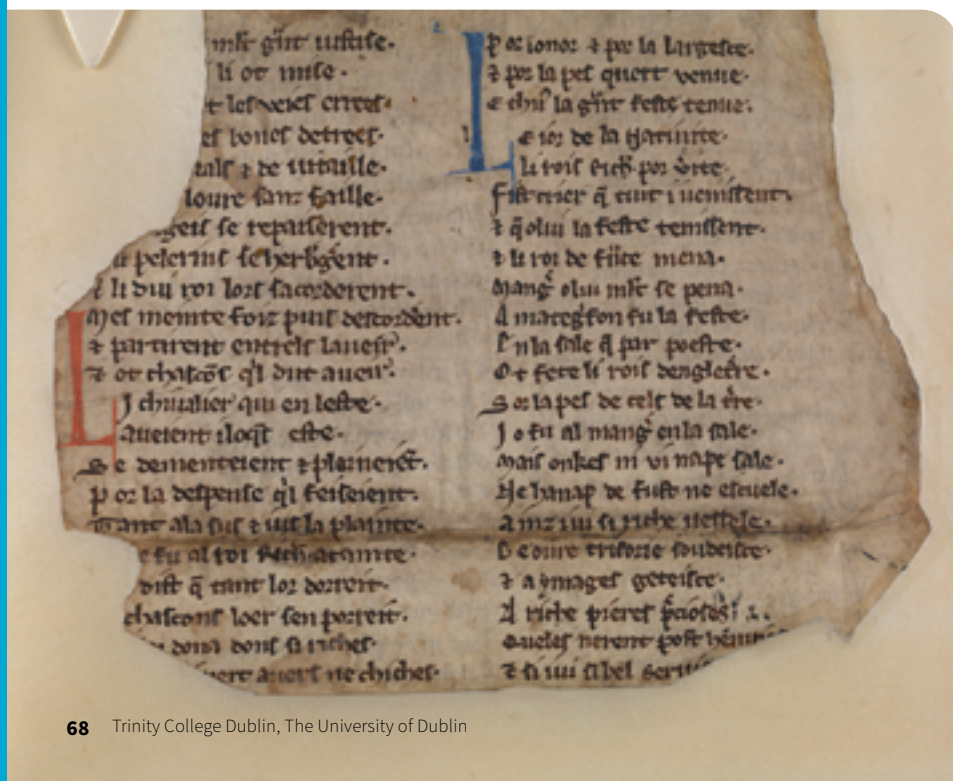 mlt gnt iustise.
li ot mise.
t les veies errees.
es bones detrees.
als ⁊ de uitaille.
loure sanz faille.
se repairerent.
pelerins se herbgent.
⁊ li dui roi lors sacorderent.
Mes meinte foiz puis descorderent.
⁊ partirent entrels lauesr.
⁊ ot chascons ql dut aueir.
Li chiualier qui en leste.
aueient iloqt este.
Se dementeient ⁊ pleineiet.
Por la despense ql feiseient.
Tant ala sus ⁊ ius la plainte.
e fu al roi Rich atainte.
dist q tant lor dorreit.
chascons loer sen porreit.
dona dons si riches.
auers ne chiches.
Por lonor ⁊ por la largesce.
⁊ por la pes quert venue.
e chu la gnt feste tenue.
Le ior de la natiuite.
li rois Rich por uite.
Fist crier q tuit i uenissent.
⁊ q o lui la feste tenissent.
⁊ li roi de fnce mena.
Mang o lui mlt se pena.
A mategrifon fu la feste.
En la sale q par poeste.
Ot fete li rois dengletre.
Sor la pes de cels de la tre.
Jo fu al mang en la sale.
Mais onkes ni vi nape sale.
Ne hanap de fust ne escuele.
Ainz i ui si riche uessele.
Deoure triforie soudeisce.
⁊ a ymages geteisce.
A riche pieres pcioses
Queles nerent post
⁊ si i ui si bel serui
68 Trinity College Dublin, The University of Dublin